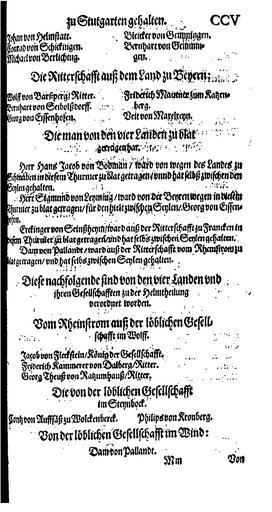 zu Stutgarten gehalten. CCV
Johan von Helmstatt. Bleicker von Gemmingen.
Conrad von Schickingen. Bernhart von Gemmin-
Michael von Berliching. gen.
Die Ritterschafft auß dem Land zu Beyern:
Wolff von Parsperg/ Ritter. Friderich Mautner zum Katzen-
Bernhart von Seiboltzdorff. berg.
Gentz von Eissenhofen. Veit von Maxelrein.
Die man von den vier Landen zu blat
getregen hat.
Herr Hans Jacob von Bodman/ ward von wegen des Landes zu
Schwaben in diesem Thurnier zu blat getragen/ unnd hat selbß zwischen den
Seylen gehalten.
Herr Sigmund von Leyming/ ward von der Beyern wegen in diesem
Thurnier zu blat getragen/ für den hielt zwischen Seylen/ Georg von Eissen
hofen.
Erckinger von Seinßheym/ ward auß der Ritterschafft zu Francken in
diesem Thurnier zu blat getragen/ und hat selbs zwischen Seylen gehalten.
Dam von Pallandt/ ward auß der Ritterschafft vom Rheinstrom zu
blat getragen/ und hat selbs zwischen Seylen gehalten.
Diese nachfolgende sind von den vier Landen und
ihren Gesellschafften zu der Helmtheilung
verordnet worden.
Vom Rheinstrom auß der löblichen Gesell-
schafft im Wolff.
Jacob von Fleckstein/ König der Gesellschafft.
Friderich Kammerer von Dalberg/ Ritter.
Georg Theuß von Ratzumhauß/ Ritter.
Die von der löblichen Gesellschafft
im Steynbock.
von Auffsäß zu Wolckenberck. Philips von Kronberg.
Von der löblichen Gesellschafft im Wind:
Dam von Pallandt.
Mm Von